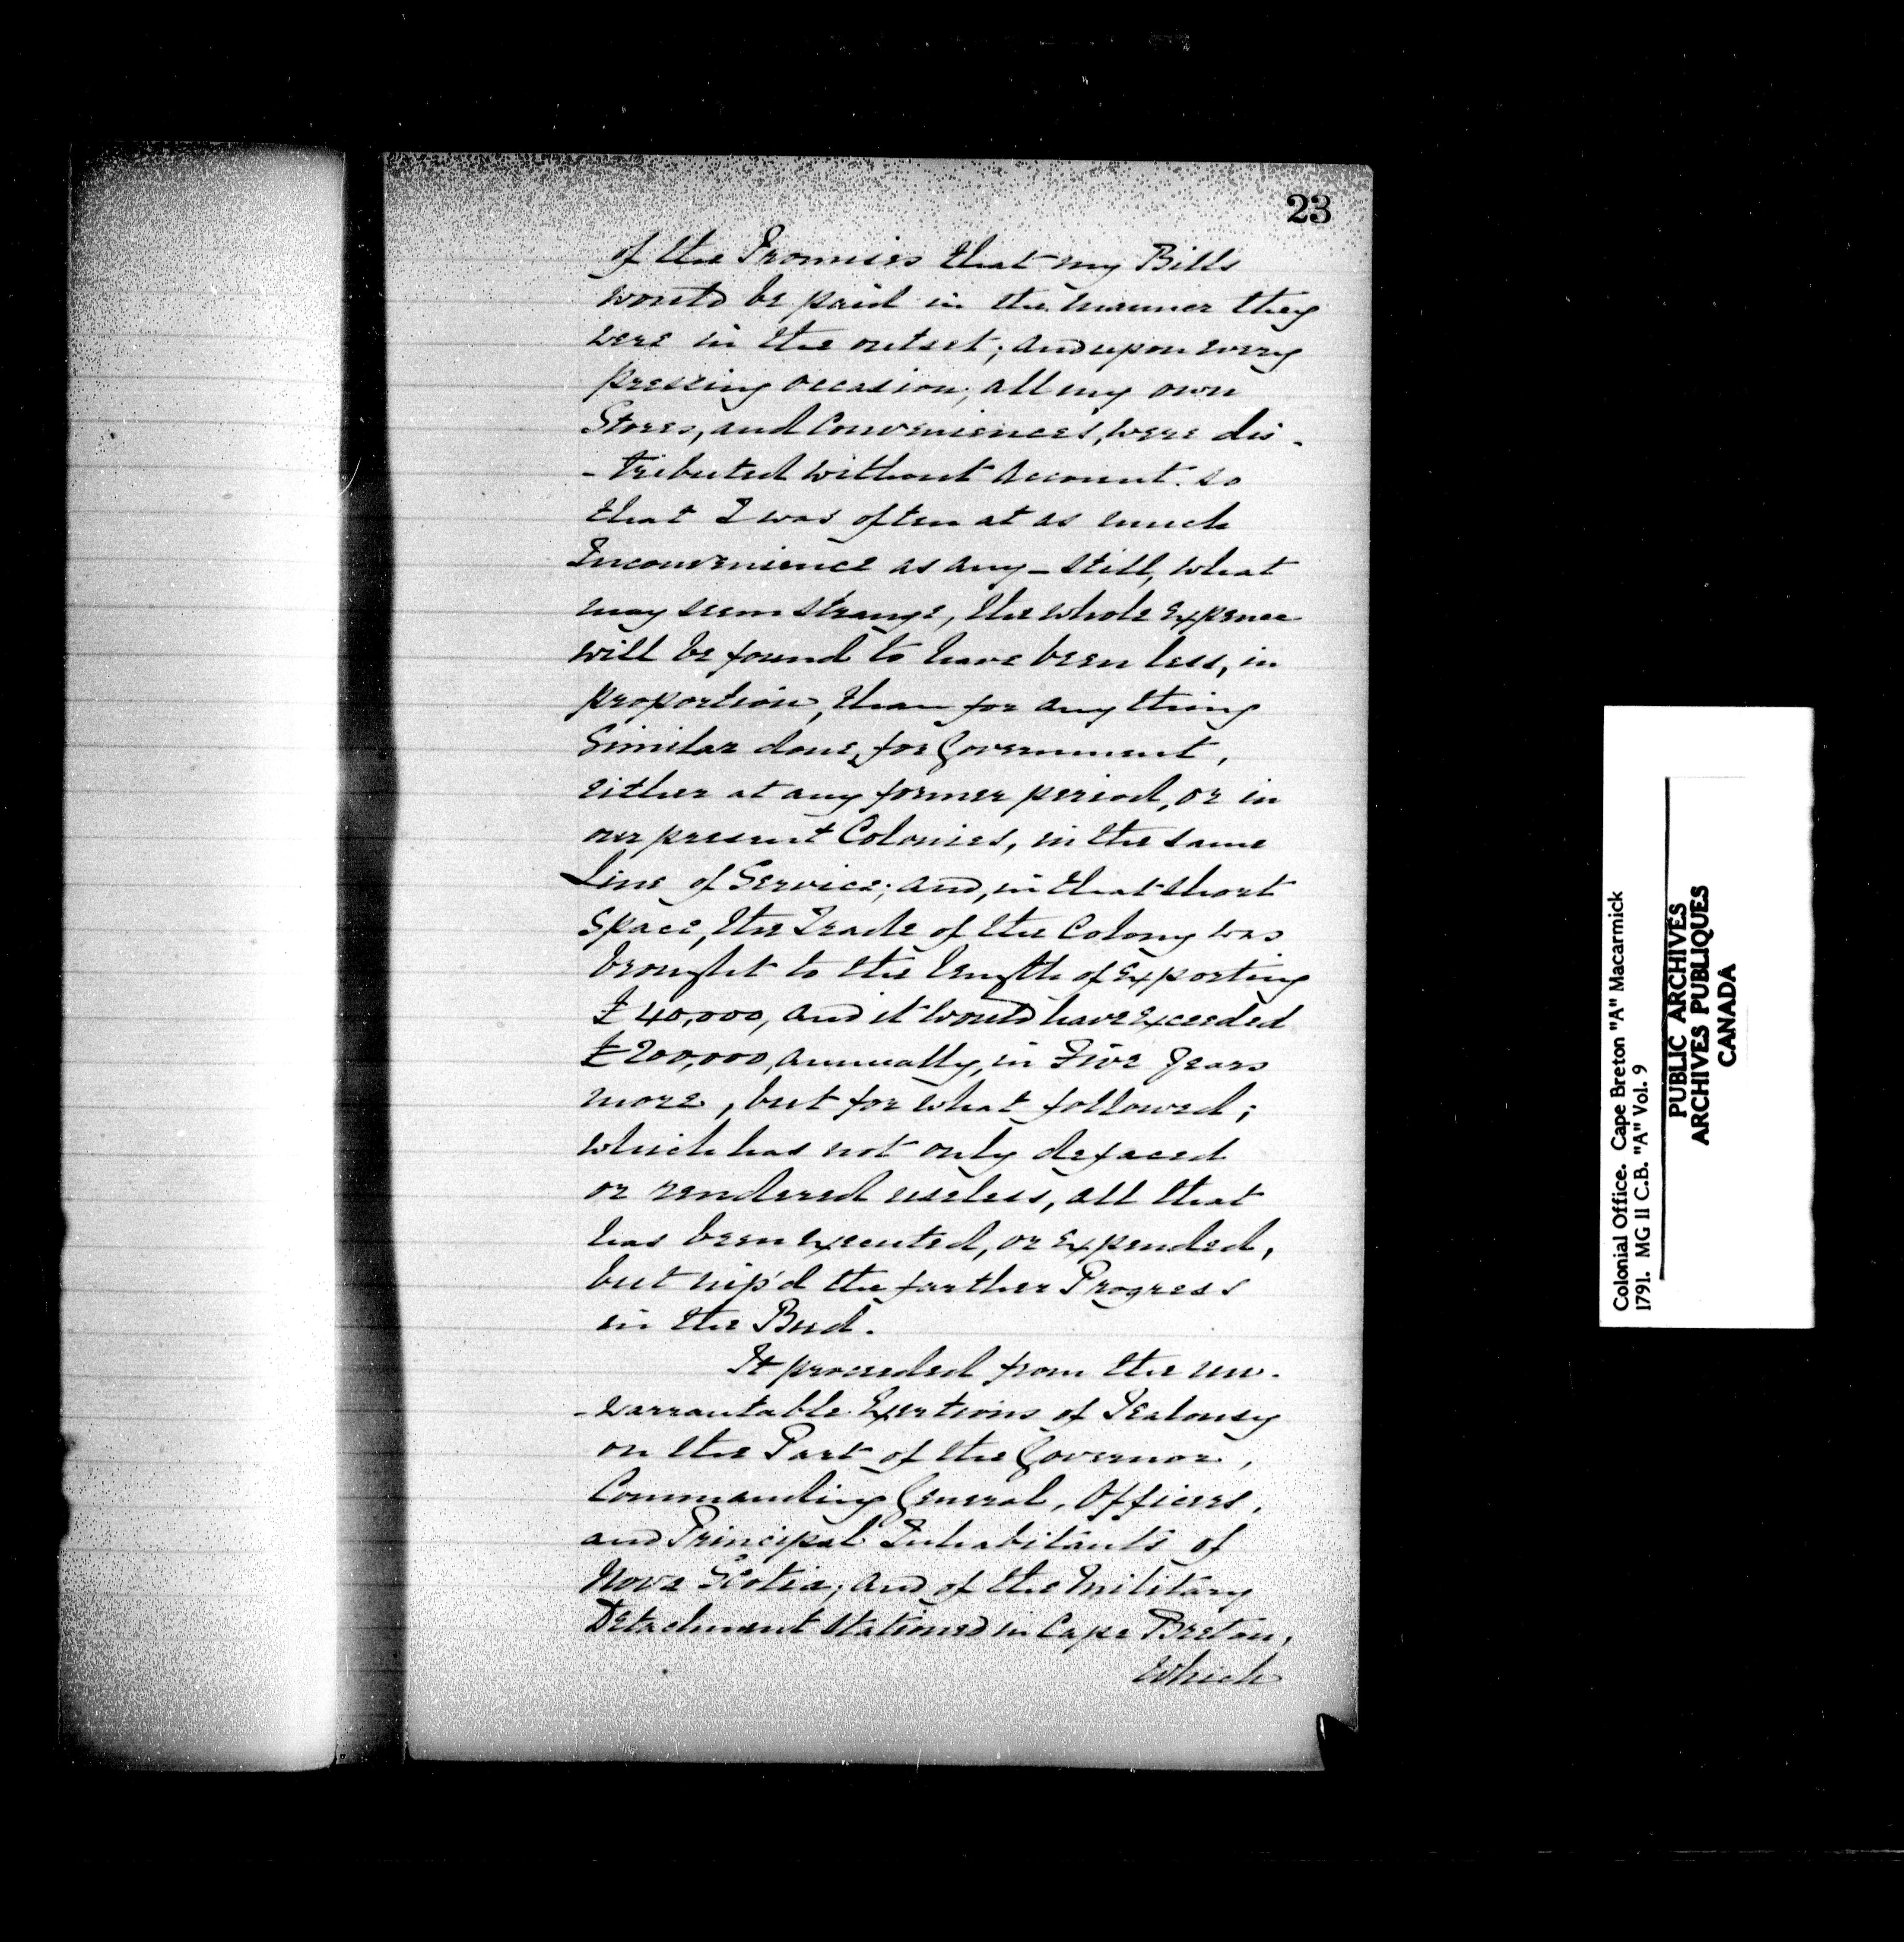 23
of the Promises that my Bills
would be paid in the manner they
were in the outset; and upon every
pressing occasion, all my own
Stores, and Conveniences, were dis-
-tributed without account. so
that I was often at as much
Inconvenience as any – still, what
may seem strange, the whole expence
will be found to have been less, in
proportion, than for any thing
Similar done, for Government,
either at any former period, or in
our present Colonies, in the same
Line of Service; and, in that short
Space, the Trade of the Colony was
brought to the length of exporting
£40,000, and it would have exceeded
£200,000, annually, in Five Years
more, but for what followed;
which has not only defaced
or rendered useless, all that
has been executed, or expended,
but nip'd the farther Progress
in the Bud.
It proceeded from the un-
-warrantable Exertions of Jealousy
on the Part of the Governor,
Commanding General, Officers,
and Principal Inhabitants of
Nova Scotia; and of the Military
Detachment stationed in Cape Breton,
Which
Colonial Office. Cape Breton "A" Macarmick
1791. MG 11 C.B. "A" Vol. 9
PUBLIC ARCHIVES
ARCHIVES PUBLIQUES
CANADA